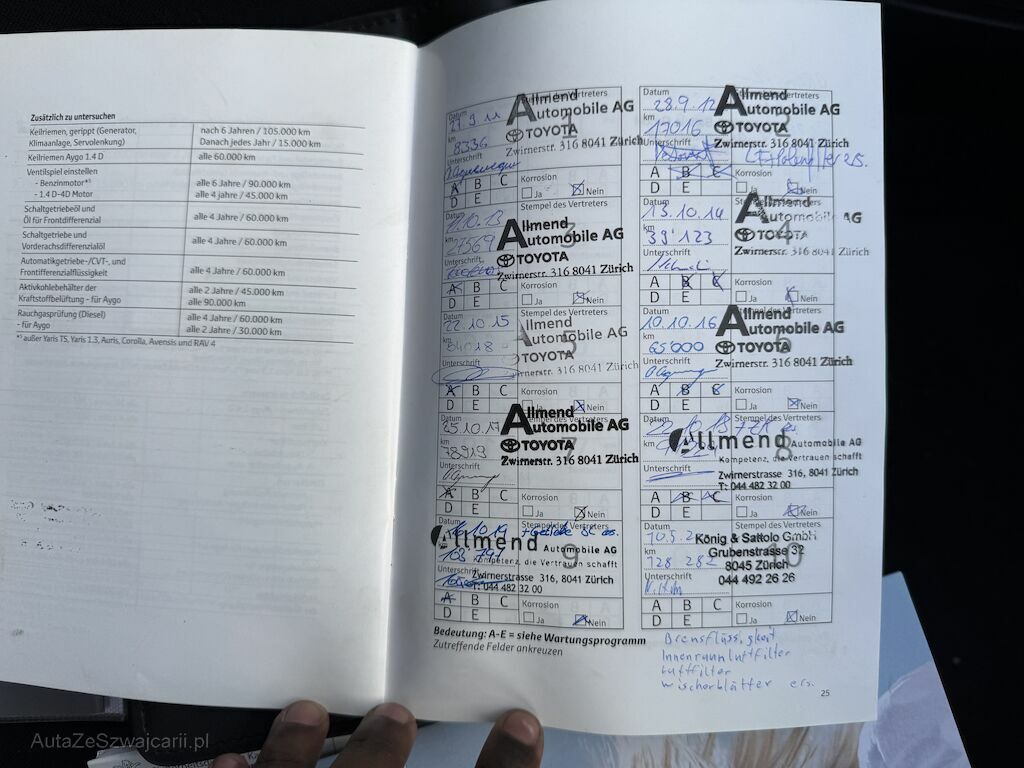 Zusätzlich zu untersuchen
Keilriemen, gerippt (Generator, Klimaanlage, Servolenkung)
nach 6 Jahren / 105.000 km
Danach jedes Jahr / 15.000 km
Keilriemen Aygo 1.4 D
alle 60.000 km
Ventilspiel einstellen
- Benzinmotor*¹
alle 6 Jahre / 90.000 km
- 1.4 D-4D Motor
alle 4 Jahre / 45.000 km
Schaltgetriebeöl und
Öl für Frontdifferenzial
alle 4 Jahre / 60.000 km
Schaltgetriebe und
Vorderachsdifferenzialöl
alle 4 Jahre / 60.000 km
Automatikgetriebe-/CVT-, und
Frontdifferenzialflüssigkeit
alle 4 Jahre / 60.000 km
Aktivkohlebehälter der
Kraftstoffbelüftung - für Aygo
alle 2 Jahre / 45.000 km
alle 90.000 km
Rauchgasprüfung (Diesel)
- für Aygo
alle 4 Jahre / 60.000 km
alle 2 Jahre / 30.000 km
*¹ außer Yaris TS, Yaris 1.3, Auris, Corolla, Avensis und RAV 4
Datum
km
8336
Unterschrift
Allmend
Automobile AG
TOYOTA
Zwirnerstr. 316 8041 Zürich
1
A B C
D E
Korrosion
Ja Nein
Datum
28.9.12
km
17016
Unterschrift
Allmend
Automobile AG
TOYOTA
Zwirnerstr. 316 8041 Zürich
2
A B C
D E
Korrosion
Ja Nein
Datum
km
27569
Unterschrift
Stempel des Vertreters
Allmend
Automobile AG
TOYOTA
Zwirnerstr. 316 8041 Zürich
3
A B C
D E
Korrosion
Ja Nein
Datum
13.10.14
km
39'123
Unterschrift
Allmend
Automobile AG
TOYOTA
Zwirnerstr. 316 8041 Zürich
4
A B C
D E
Korrosion
Ja Nein
Datum
22.10.15
km
Unterschrift
Allmend
Automobile AG
TOYOTA
Zwirnerstr. 316 8041 Zürich
5
A B C
D E
Korrosion
Ja Nein
Datum
10.10.16
km
65'000
Unterschrift
Allmend
Automobile AG
TOYOTA
Zwirnerstr. 316 8041 Zürich
6
A B C
D E
Korrosion
Ja Nein
Datum
25.10.17
km
78919
Unterschrift
Allmend
Automobile AG
TOYOTA
Zwirnerstr. 316 8041 Zürich
7
A B C
D E
Korrosion
Ja Nein
Datum
km
Unterschrift
Stempel des Vertreters
Allmend Automobile AG
Kompetenz, die Vertrauen schafft
Zwirnerstrasse 316, 8041 Zürich
T: 044 482 32 00
8
A B C
D E
Korrosion
Ja Nein
Datum
km
Unterschrift
Stempel des Vertreters
Allmend Automobile AG
Kompetenz, die Vertrauen schafft
Zwirnerstrasse 316, 8041 Zürich
T: 044 482 32 00
9
A B C
D E
Korrosion
Ja Nein
Datum
km
128 282
Unterschrift
Stempel des Vertreters
König & Sattolo GmbH
Grubenstrasse 32
8045 Zürich
044 492 26 26
10
A B C
D E
Korrosion
Ja Nein
Bedeutung: A-E = siehe Wartungsprogramm
Zutreffende Felder ankreuzen
Bremsflüssigkeit
Innenraumluftfilter
Luftfilter
Wischerblätter ers.
25
AutaZeSzwajcarii.pl